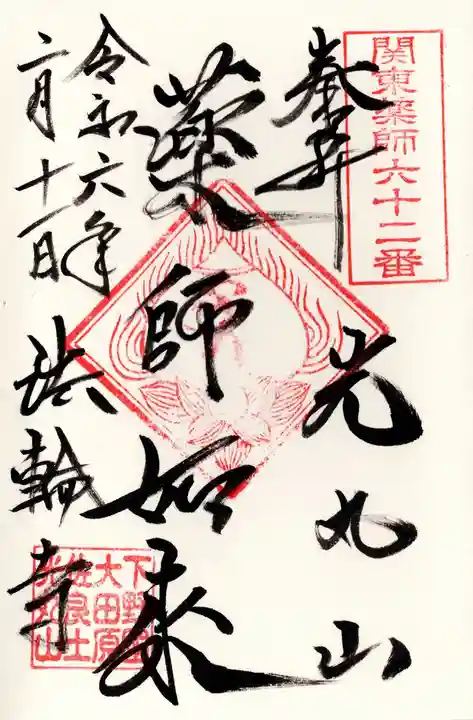 関東薬師六十二番
奉拝
光丸山
薬師如来
令和六年
二月十一日
法輪寺
下野國
大田原
佐良土
光丸山